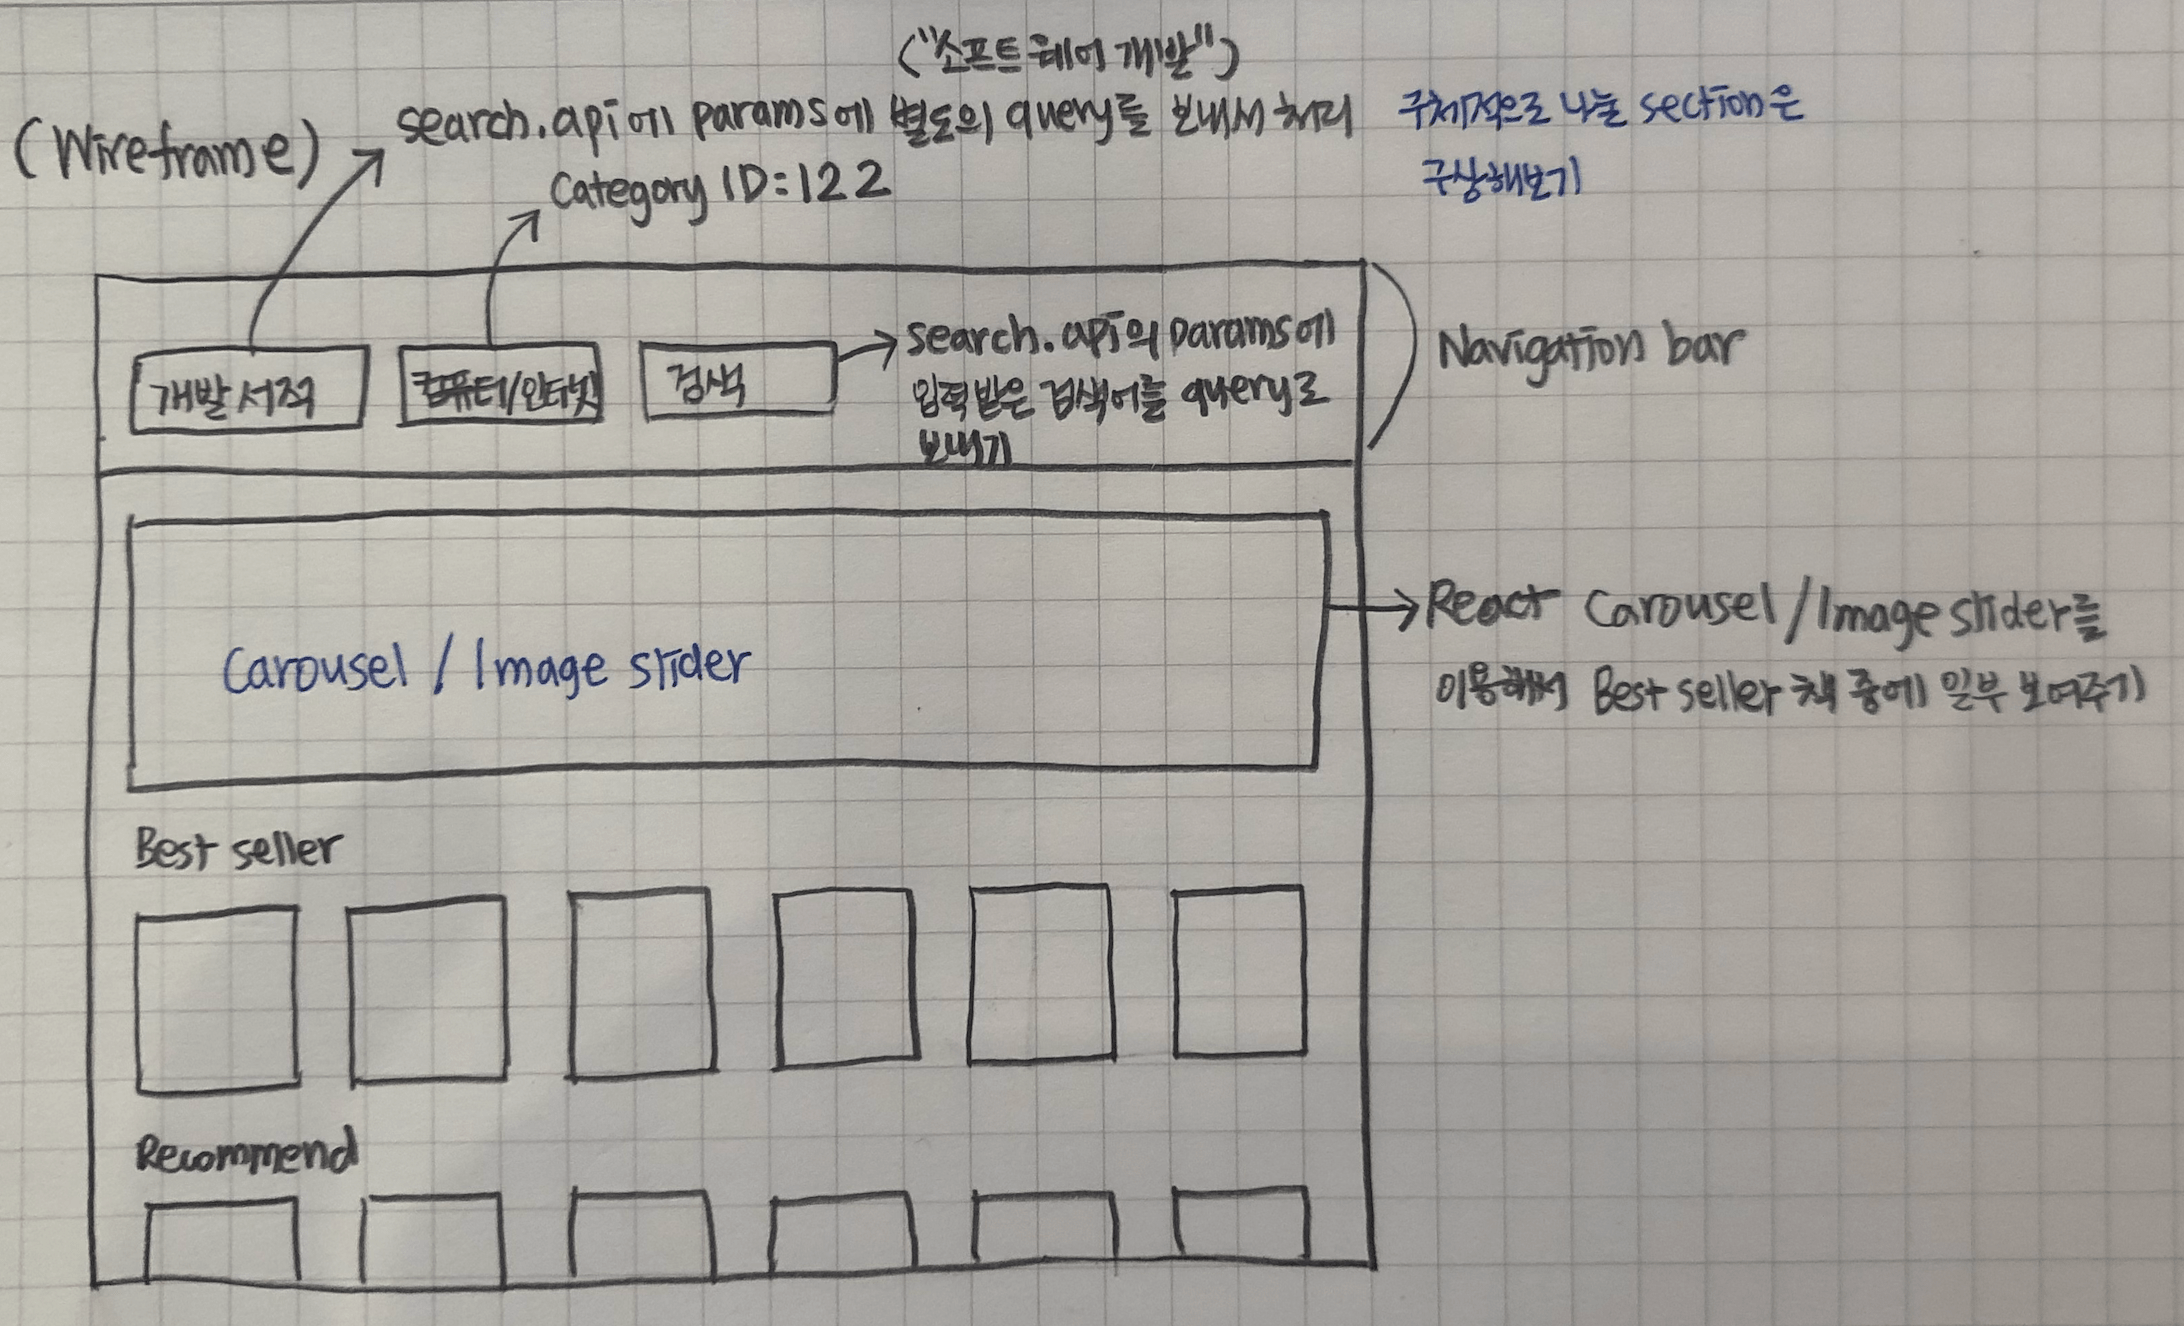 ("소프트웨어 개발")
(Wireframe)
search.api에 params에 별도의 query를 보내서 처리
구체적으로 나눌 section은
구상해보기
Category ID:122
개발서적
컴퓨터/인터넷
검색
search.api의 params에
입력받은 검색어를 query로
보내기
Navigation bar
Carousel / Image slider
React Carousel/Image slider를
이용해서 Best seller 책 중에 일부 보여주기
Best seller
Recommend